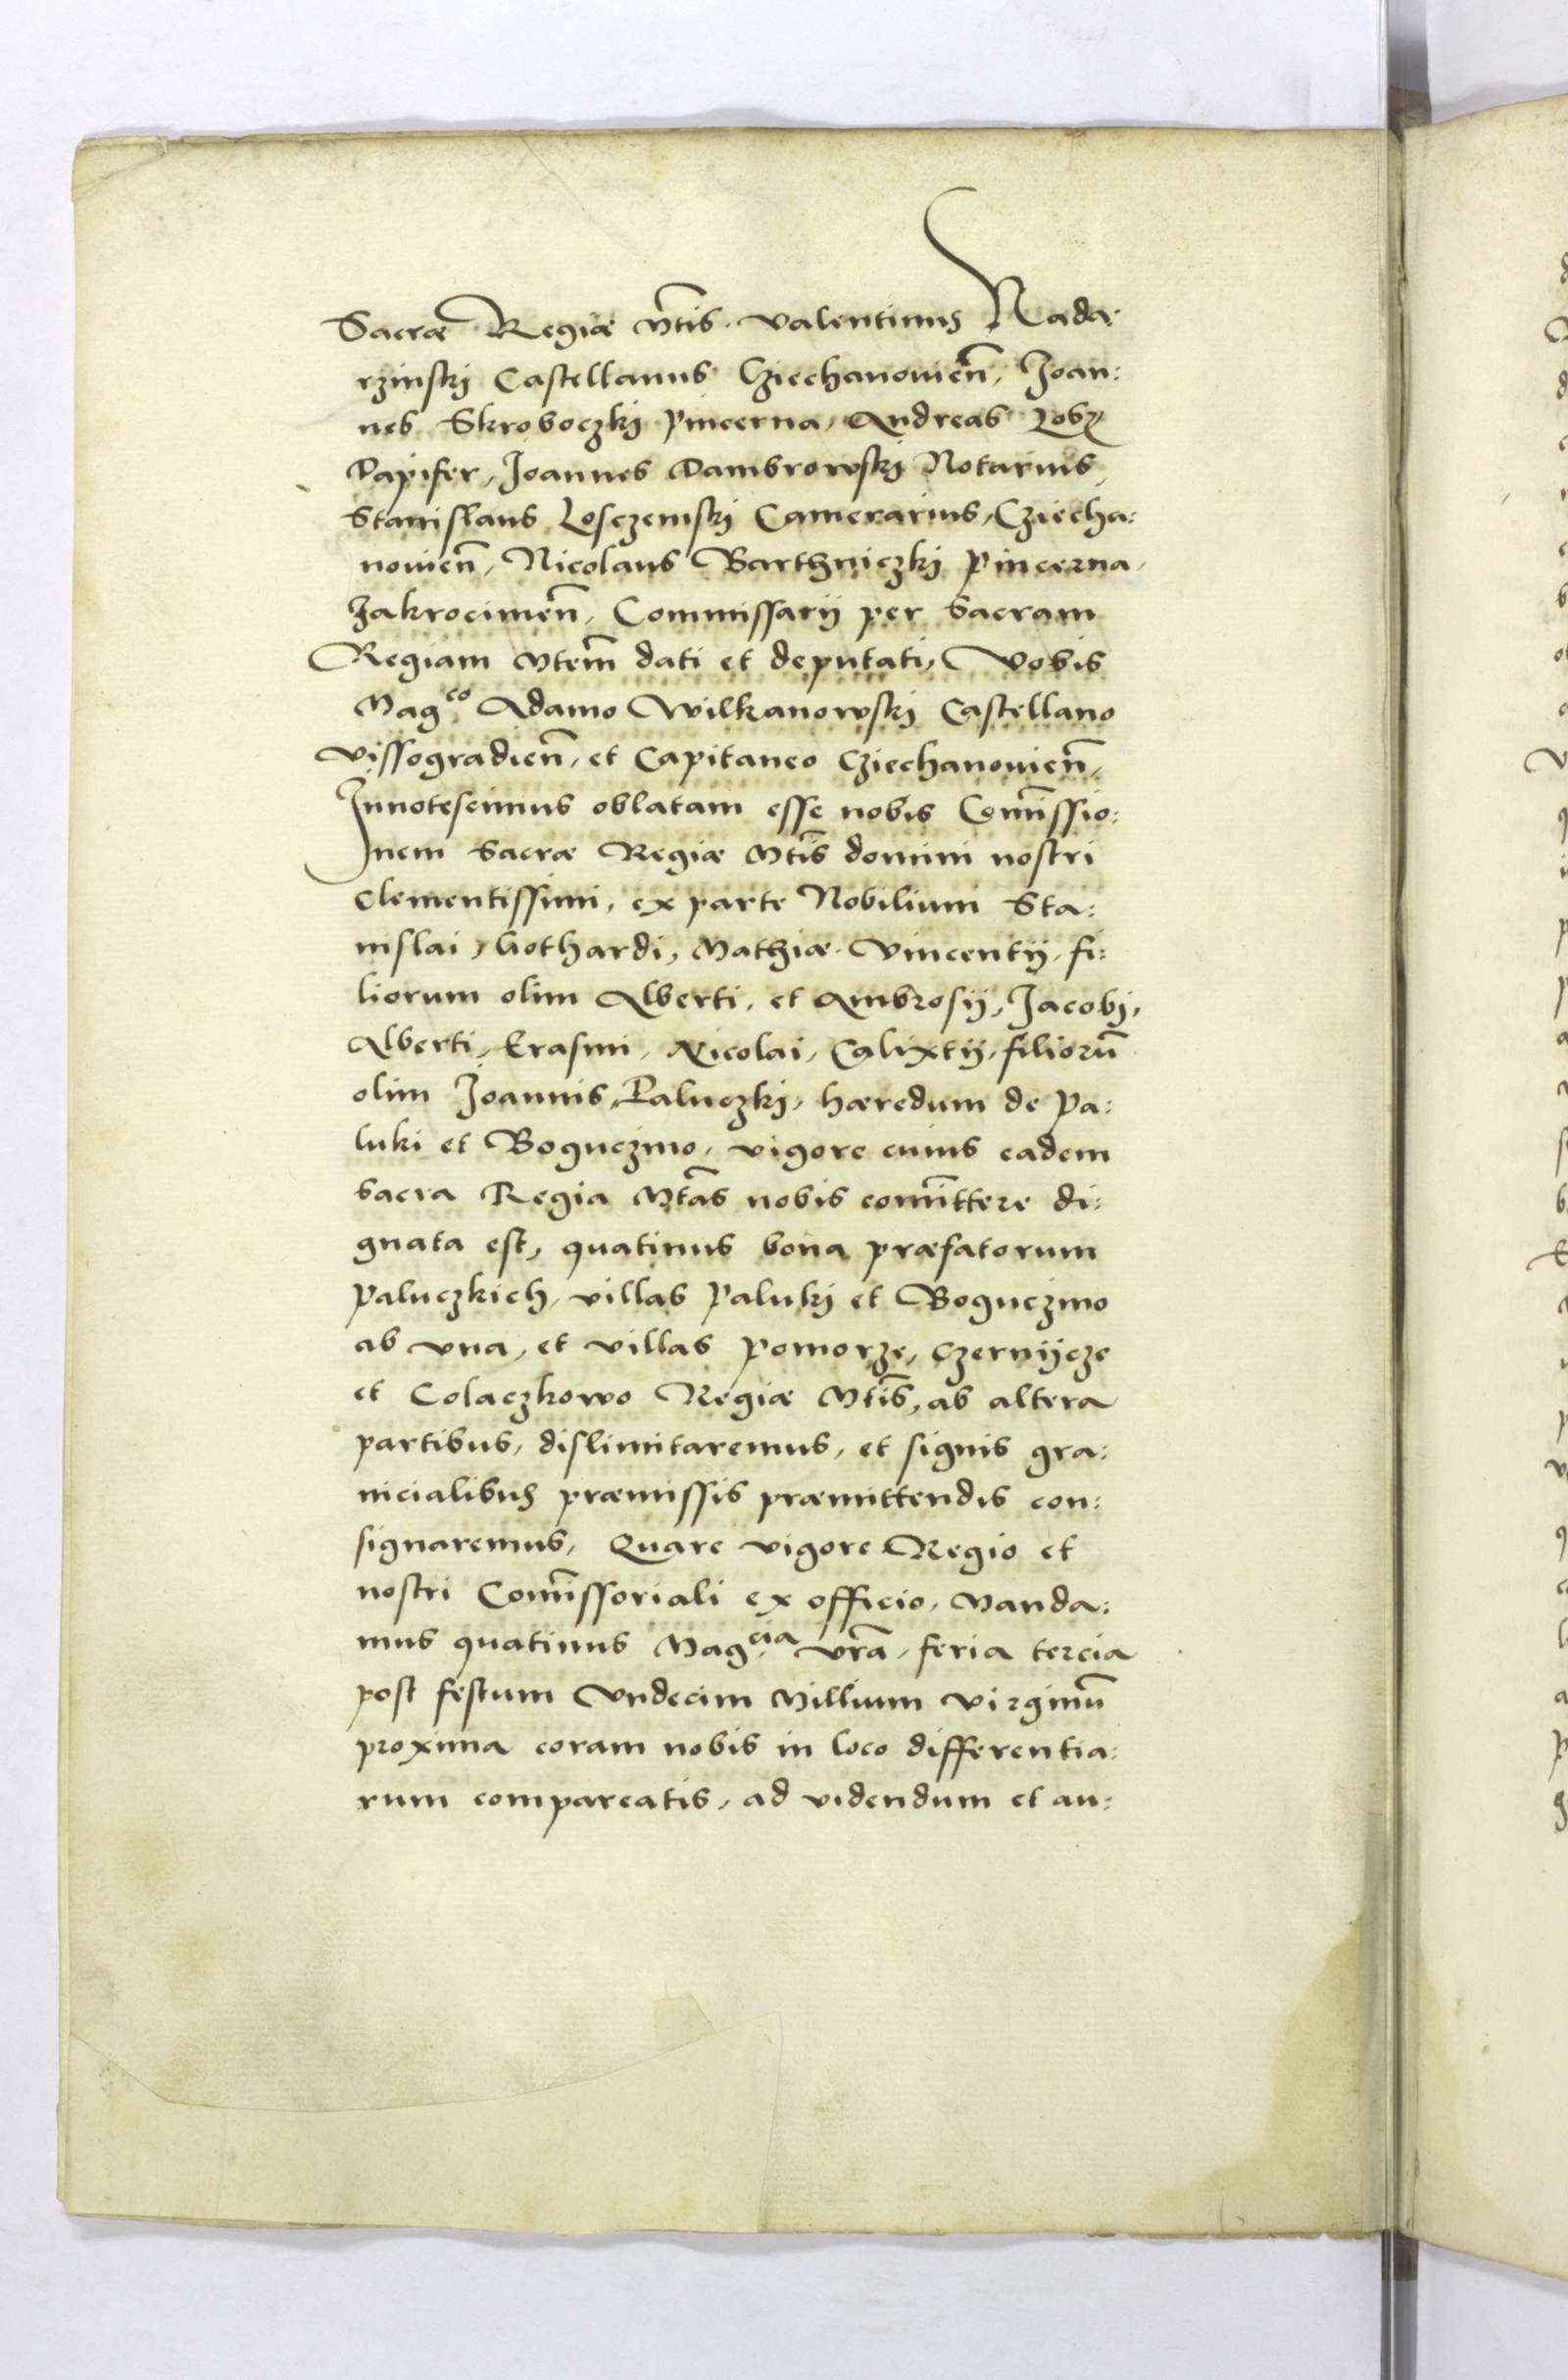 Sacræ Regiæ Mt̃is. Valentinus Nada-
rzinski Castellanus Cziechanovien̄, Joan:
nes Skroboczki Pincerna, Andreas
Dapifer, Joannes Dambrowski Notarius,
Stanislaus Losczemski Camerarius, Cziecha:
novien̄, Nicolaus Barthniczki Pincerna,
Zakrocimen̄, Commissarij per Sacram
Regiam Mtem̄ dati et deputati, Vobis
Mag.co Adamo Wilkanowski Castellano
Vissogradien̄, et Capitaneo Cziechanovien̄,
Innotescimus oblatam esse nobis Com̄issio:
nem Sacræ Regiæ Mt̃is domini nostri
clementissimi, ex parte Nobilium Sta:
nislai, Gothardi, Mathiæ, Vincentij, fi:
liorum olim Alberti, et Ambrosij, Jacobj,
Alberti, Erasmi, Nicolai, Calixtij, filiorū
olim Joannis, Paluczki, hæredum de Pa:
luki et Boguczino, vigore cuius eadem
Sacra Regia Mt̃as nobis com̄ittere di:
gnata est, quatinus bona præfatorum
Paluczkich, villas Paluki et Boguczino
ab una, et villas Pomorze, Czernijcze
et Colaczkowo Regiæ Mt̃is, ab altera
partibus, dislimitaremus, et signis gra:
nicialibus præmissis præmittendis con:
signaremus, Quare vigore Regio et
nostri Com̄issoriali ex officio, Manda:
mus quatinus Mag.cia vr̃a, feria tercia
post festum Undecim Millium Virginū
proxima coram nobis in loco differentia:
rum compareatis, ad videndum et au: